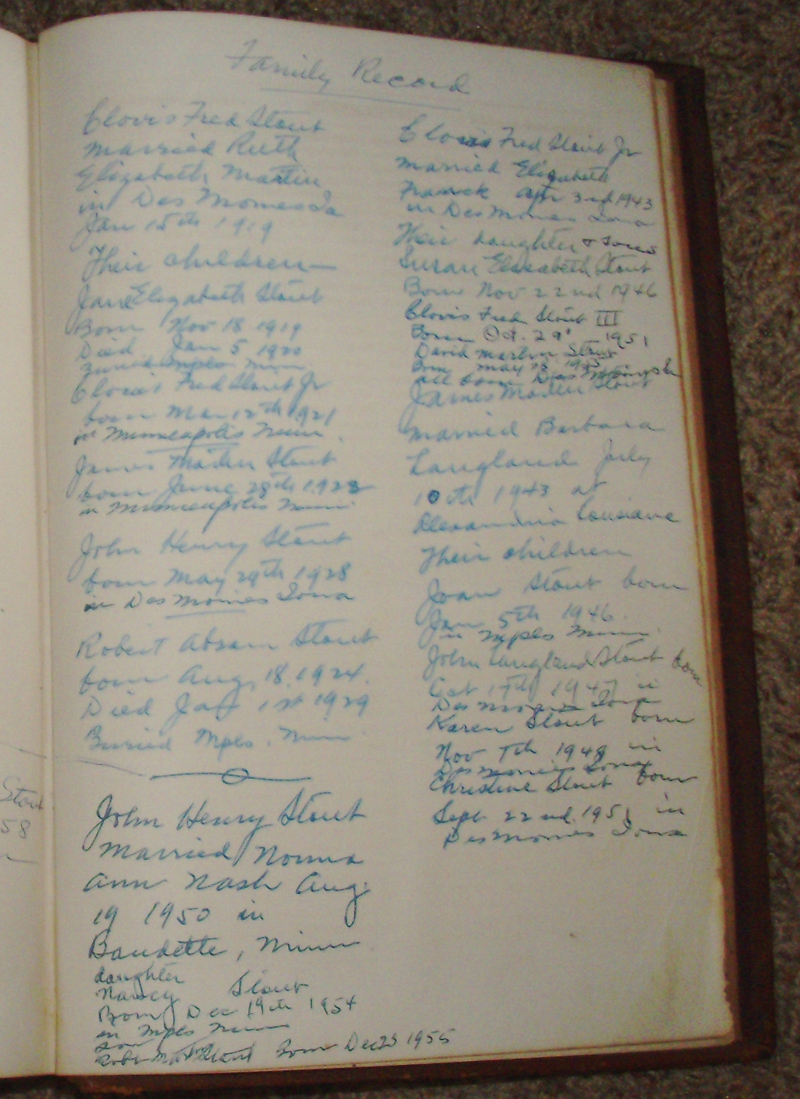 Family Record
Clovis Fred Stout
married Ruth
Elizabeth Martin
in Des Moines Ia
Jan 15th 1919
Their children—
Jane Elizabeth Stout
Born Nov 18 1919
Died Jan 5 1920
buried Mpls Minn
Clovis Fred Stout Jr
born Mar 12th 1921
in Minneapolis Minn.
James Martin Stout
born June 28th 1922
in Minneapolis Minn.
John Henry Stout
born May 29th 1928
in Des Moines Iowa
Robert Abram Stout
born Aug. 18. 1924.
Died Jan 1st 1929
Buried Mpls. Minn.
John Henry Stout
married Norma
Ann Nash Aug.
19 1950 in
Baudette, Minn
daughter
Nancy Stout
Born Dec 19th 1954
in Mpls Minn
son
Stout Born Dec 23 1955
Clovis Fred Stout Jr
married Elizabeth
Apr 3rd 1943
in Des Moines Iowa
Their daughter & sons
Susan Elizabeth Stout
Born Nov 22nd 1946
Clovis Fred Stout III
Born Oct. 29 1951
David Martin Stout
Born May 13
all born Des Moines
James Martin Stout
married Barbara
Langland July
10th 1943 at
Alexandria Lousiana
Their children
Joan Stout born
Jan 5th 1946.
in Mpls Minn.
John Langland Stout born
Oct 17th 1947 in
Des Moines Iowa
Karen Stout born
Nov 7th 1948 in
Des Moines Iowa
Christine Stout born
Sept 22nd. 1951 in
Des Moines Iowa
Stout
58